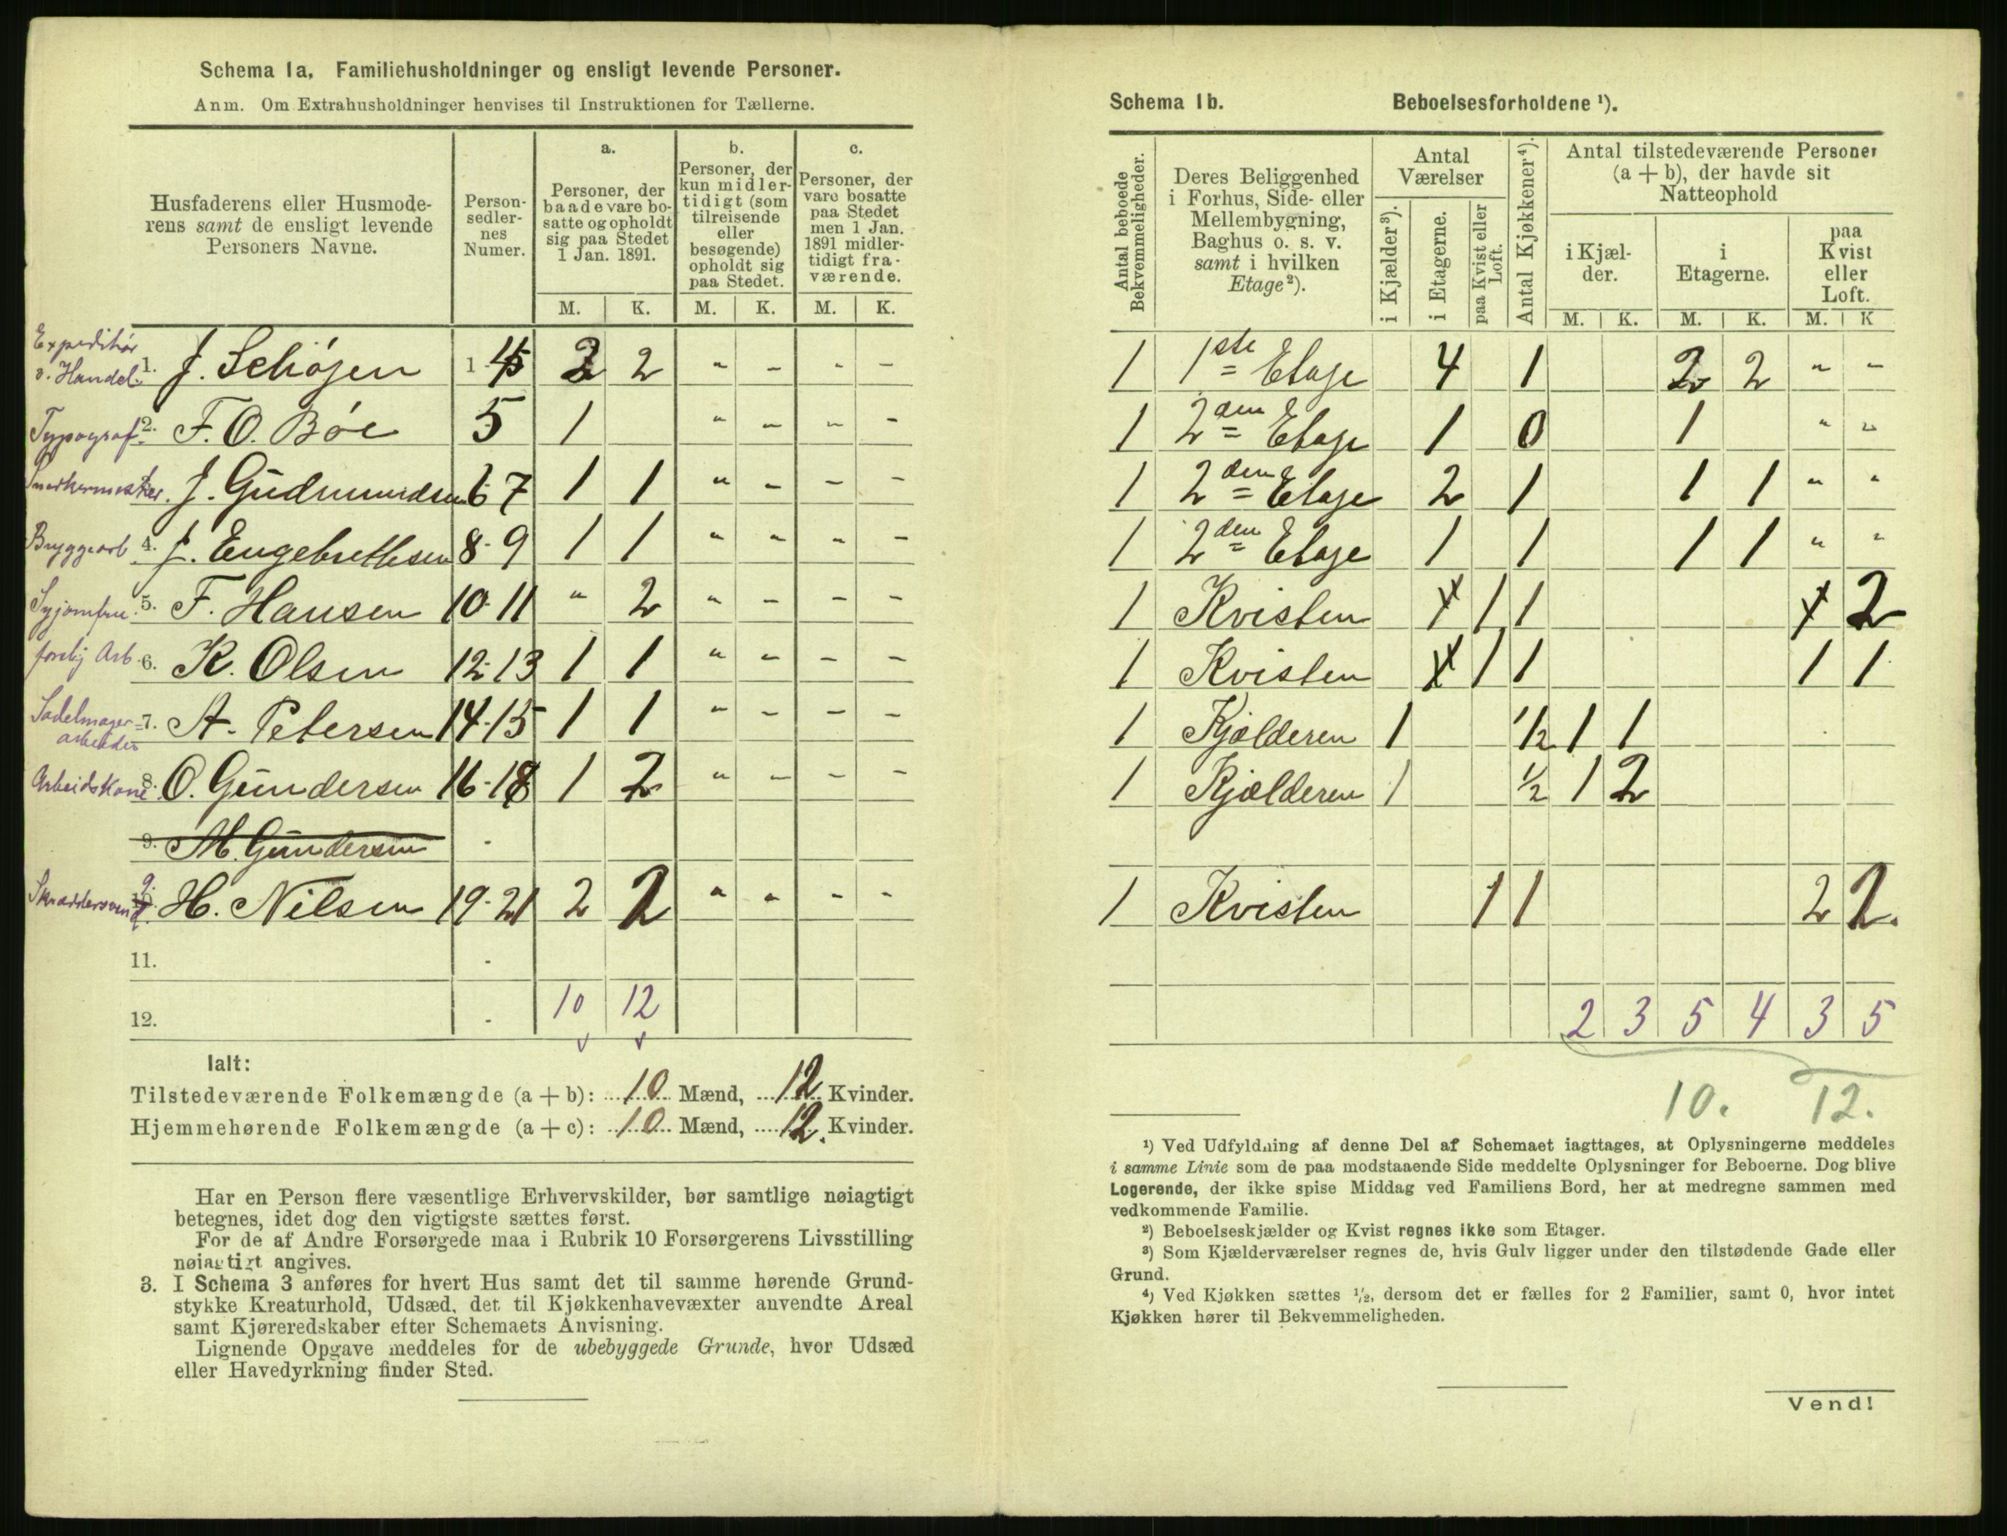 Schema 1a. Familiehusholdninger og ensligt levende Personer.
Anm. Om Extrahusholdninger henvises til Instruktionen for Tællerne.
Husfaderens eller Husmode-
rens samt de ensligt levende
Personers Navne.
Person-
sedler-
nes
Numer.
a.
Personer, der
baade vare bo-
satte og opholdt
sig paa Stedet
1 Jan. 1891.
b.
Personer, der
kun midler-
tidigt (som
tilreisende
eller
besøgende)
opholdt sig
paa Stedet.
c.
Personer, der
vare bosatte
paa Stedet
men 1 Jan.
1891 midler-
tidigt fra-
værende.
M. K. M. K. M. K.
Expeditør
v. Handel 1. J. Schøjen 1 - 4 2 2 " - - -
Typograf 2. F. O. Bøe 5 1 " - - -
J. Gudmundsen 6-7 1 1 " - - -
Bryggearb 4. J. Engebrethsen 8-9 1 1 " " - -
Syjomfru 5. F. Hansen 10-11 " 2 " - - -
forhj Arb 6. K. Olsen 12-13 1 1 " - - -
Sadelmager
arbeider 7. A. Petersen 14-15 1 1 " - - -
Arbeidskone 8. O. Gundersen 16-18 1 2 " - - -
9. M. Gundersen -
Skræddersvend 9. H. Nilsen 19-21 2 2 " " - -
11. -
12. - 10 12
Ialt:
Tilstedeværende Folkemængde (a + b): 10 Mænd, 12 Kvinder.
Hjemmehørende Folkemængde (a + c): 10 Mænd, 12. Kvinder.
Har en Person flere væsentlige Erhvervskilder, bør samtlige nøiagtigt
betegnes, idet dog den vigtigste sættes først.
For de af Andre Forsørgede maa i Rubrik 10 Forsørgerens Livsstilling
nøiagtigt angives.
3. I Schema 3 anføres for hvert Hus samt det til samme hørende Grund-
stykke Kreaturhold, Udsæd, det til Kjøkkenhavevæxter anvendte Areal
samt Kjøreredskaber efter Schemaets Anvisning.
Lignende Opgave meddeles for de ubebyggede Grunde, hvor Udsæd
eller Havedyrkning finder Sted.
Schema 1b. Beboelsesforholdene ¹).
Antal beboede
Bekvemmeligheder.
Deres Beliggenhed
i Forhus, Side- eller
Mellembygning,
Baghus o. s. v.
samt i hvilken
Etage²).
Antal
Værelser
i Kjælder³).
i Etagerne.
paa Kvist eller
Loft.
Antal Kjøkkener⁴).
Antal tilstedeværende Personer
(a + b), der havde sit
Natteophold
i Kjæl-
der.
i
Etagerne.
paa
Kvist
eller
Loft.
M. K. M. K. M. K
1 1ste Etage 4 1 2 2 " -
1 2den Etage 1 0 1 " "
1 2den Etage 2 1 1 1 " "
1 2den Etage 1 1 1 1 " "
1 Kvisten 1 1 1 1 2
1 Kvisten 1 1 1 1 1
1 Kjælderen 1 1/2 1 1
1 Kjælderen 1 1/2 1 2
1 Kvisten 1 1 2 2.
2 3 5 4 3 5
10. 12.
¹) Ved Udfyldning af denne Del af Schemaet iagttages, at Oplysningerne meddeles
i samme Linie som de paa modstaaende Side meddelte Oplysninger for Beboerne. Dog blive
Logerende, der ikke spise Middag ved Familiens Bord, her at medregne sammen med
vedkommende Familie.
²) Beboelseskjælder og Kvist regnes ikke som Etager.
³) Som Kjælderværelser regnes de, hvis Gulv ligger under den tilstødende Gade eller
Grund.
⁴) Ved Kjøkken sættes ½, dersom det er fælles for 2 Familier, samt 0, hvor intet
Kjøkken hører til Bekvemmeligheden.
Vend!